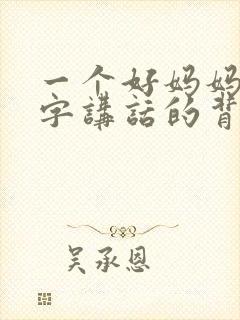 一个好妈妈
字講話的背
吴承恩